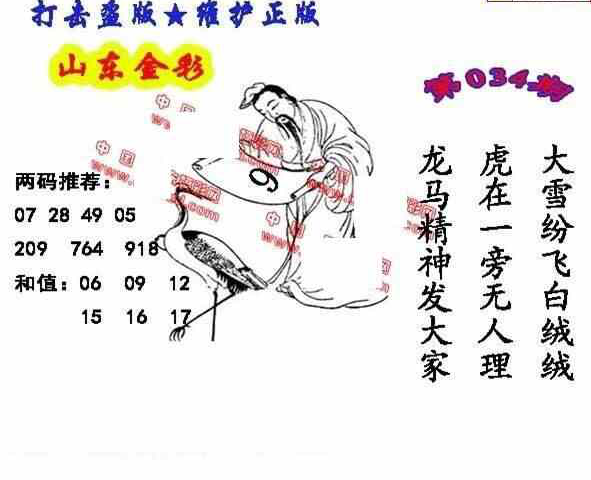 打击盗版★维护正版
山东金彩
第034期
大雪纷飞白绒绒
虎在一旁无人理
龙马精神发大家
9
两码推荐：
07 28 49 05
209 764 918
和值：06 09 12
15 16 17
中
中国
www.
.com
中国
www.